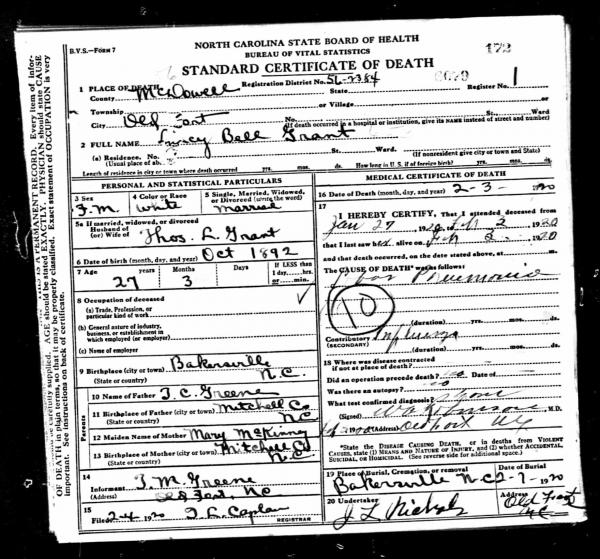 B.V.S.—FORM 7
NORTH CAROLINA STATE BOARD OF HEALTH
BUREAU OF VITAL STATISTICS
STANDARD CERTIFICATE OF DEATH
172
1 PLACE OF DEATH Registration District No. 56-3384 Register No. 1
County McDowell State
Township or Village or
City Old Fort No. St. Ward
(If death occurred in a hospital or institution, give its NAME instead of street and number)
2 FULL NAME Lucy Bell Grant
(a) Residence. No. St., Ward.
(Usual place of abode) (If nonresident give city or town and State)
Length of residence in city or town where death occurred yrs. mos. ds. How long in U. S., if of foreign birth? yrs. mos. ds.
PERSONAL AND STATISTICAL PARTICULARS
3 Sex 4 Color or Race 5 Single, Married, Widowed, or Divorced (write the word)
F.M. White married
5a If married, widowed, or divorced
Husband of
(or) Wife of Thos. L. Grant
6 Date of birth (month, day, and year) Oct 1892
7 Age Years Months Days If LESS than
27 3 1 day, hrs.
or min.
8 Occupation of deceased
(a) Trade, Profession, or
particular kind of work
(b) General nature of industry,
business, or establishment in
which employed (or employer)
(c) Name of employer
9 Birthplace (city or town) Bakersville
(State or country) N.C.
10 Name of Father T. C. Greene
11 Birthplace of Father (city or town) Mitchell Co
(State or country) NC
12 Maiden Name of Mother Mary McKinny
13 Birthplace of Mother (city or town) Mitchell Co
(State or country) N.C.
Parents
14
Informant T. M. Greene
(Address) Old Fort, NC
15 Filed 2-4 1920 T. L. Caplan
REGISTRAR
MEDICAL CERTIFICATE OF DEATH
16 Date of Death (month, day, and year) 2-3- 1920
17
I HEREBY CERTIFY, That I attended deceased from
Jan 27 1920, to Feb 2 1920
that I last saw her alive on Feb 2 1920
and that death occurred, on the date stated above, at m.
The CAUSE OF DEATH* was as follows:
Lobar Pneumonia
10
(duration) yrs. mos. ds.
Contributory Influenza
(SECONDARY)
(duration) yrs. mos. ds.
18 Where was disease contracted
if not at place of death?
Did an operation precede death? no Date of
Was there an autopsy? no
What test confirmed diagnosis?
(Signed) M.D.
Address Old Fort NC
*State the DISEASE CAUSING DEATH, or in deaths from VIOLENT
CAUSES, state (1) MEANS AND NATURE OF INJURY, and (2) whether ACCIDENTAL,
SUICIDAL, or HOMICIDAL. (See reverse side for additional space.)
19 Place of Burial, Cremation, or removal Date of Burial
Bakersville N.C. 2-7-1920
20 Undertaker Address
J L Nichols Old Fort NC